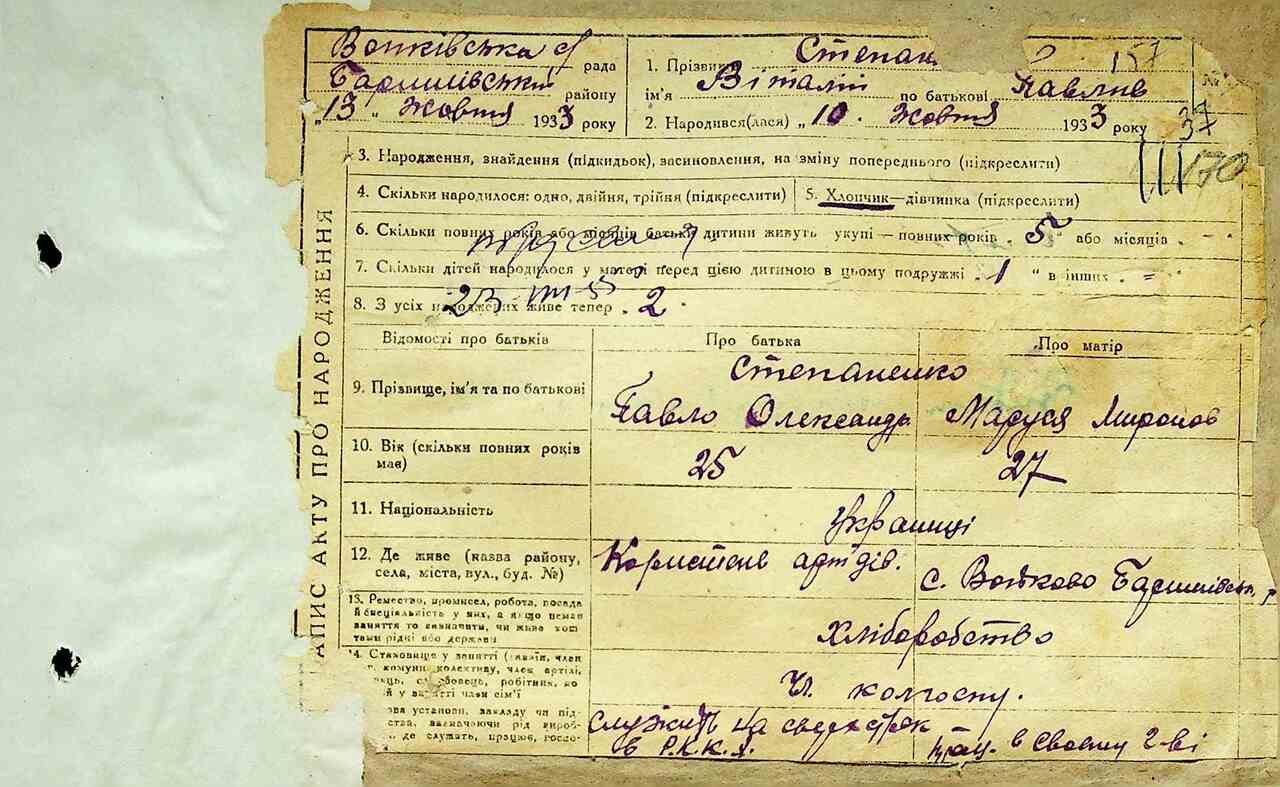 ЗАПИС АКТУ ПРО НАРОДЖЕННЯ
Войківська рада
району
„13" Жовтня 1933 року
157
1. Прізвище Степан
ім'я Віталій по батькові Павлив
2. Народився(лася) „10. Жовтня 1933 року
№
37
170
3. Народження, знайдення (підкидьок), засиновлення, на зміну попереднього (підкреслити)
4. Скільки народилося: одно, двійня, трійня (підкреслити)
5. Хлопчик—дівчинка (підкреслити)
6. Скільки повних років або місяців батьки дитини живуть укупі — повних років „5" або місяців „ —
7. Скільки дітей народилося у матері перед цією дитиною в цьому подружжі „1 " в інших „ =
8. З усіх народжених живе тепер „2
Відомості про батьків
Про батька
Про матір
9. Прізвище, ім'я та по батькові
Степаненко
Павло Олександр
Маруся Миронов
10. Вік (скільки повних років має)
25
27
11. Національність
Українці
12. Де живе (казва району, села, міста, вул., буд. №)
арт дів.
с. Войково
13. Ремество, промисел, робота, посада й спеціяльність у них, а якщо немає заняття то зазначити, чи живе кош тами рідні або держави
Хліборобство
14. Становище у занятті (хазяїн, член комуни, колективу, член артілі, службовець, робітник,
у занятті член сім'ї
Чл. колгоспу.
установи, закладу чи під-
зазначаючи рід вироб-
де служать, працює,
служить на сверхсрок
в Р.К.К.А.
прац. в своєму г-ві